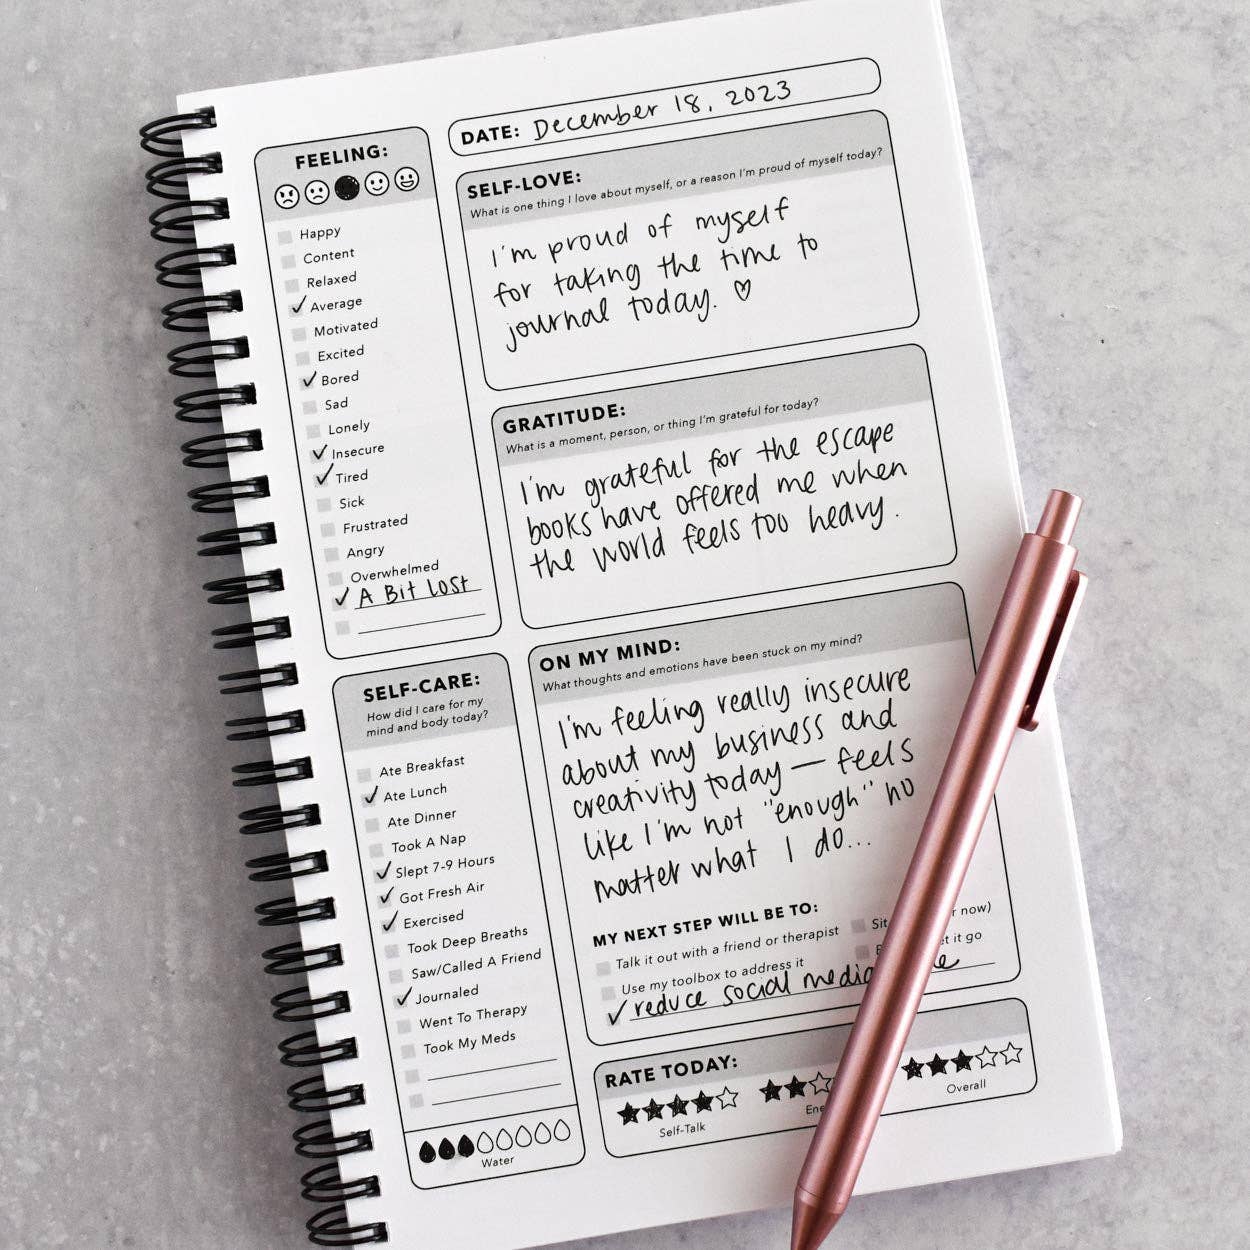 DATE: December 18, 2023
FEELING:
Happy
Content
Relaxed
Average
Motivated
Excited
Bored
Sad
Lonely
Insecure
Tired
Sick
Frustrated
Angry
Overwhelmed
A Bit Lost
SELF-CARE:
How did I care for my
mind and body today?
Ate Breakfast
Ate Lunch
Ate Dinner
Took A Nap
Slept 7-9 Hours
Got Fresh Air
Exercised
Took Deep Breaths
Saw/Called A Friend
Journaled
Went To Therapy
Took My Meds
Water
SELF-LOVE:
What is one thing I love about myself, or a reason I'm proud of myself today?
I'm proud of myself
for taking the time to
journal today. ♡
GRATITUDE:
What is a moment, person, or thing I'm grateful for today?
I'm grateful for the escape
books have offered me when
the world feels too heavy.
ON MY MIND:
What thoughts and emotions have been stuck on my mind?
I'm feeling really insecure
about my business and
creativity today — feels
like I'm not "enough" no
matter what I do...
MY NEXT STEP WILL BE TO:
Talk it out with a friend or therapist
Sit now)
Use my toolbox to address it
it go
reduce social media
RATE TODAY:
Self-Talk
Overall